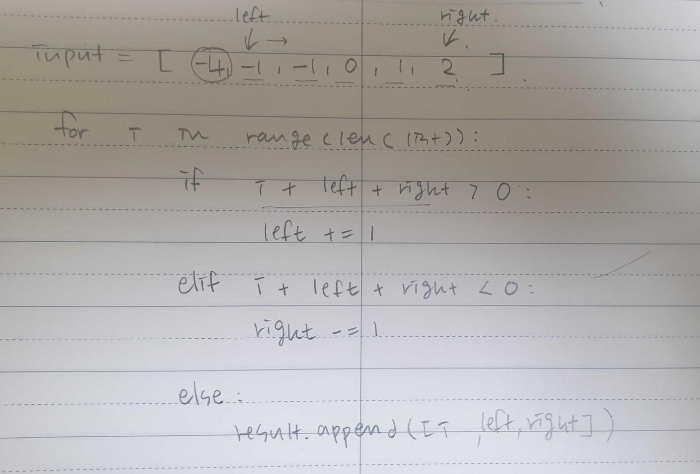 left right.
input = [ -4, -1, -1, 0, 1, 2 ]
for i in range(len(int)):
if i + left + right > 0:
left += 1
elif i + left + right < 0:
right -= 1
else:
result.append([i, left, right])